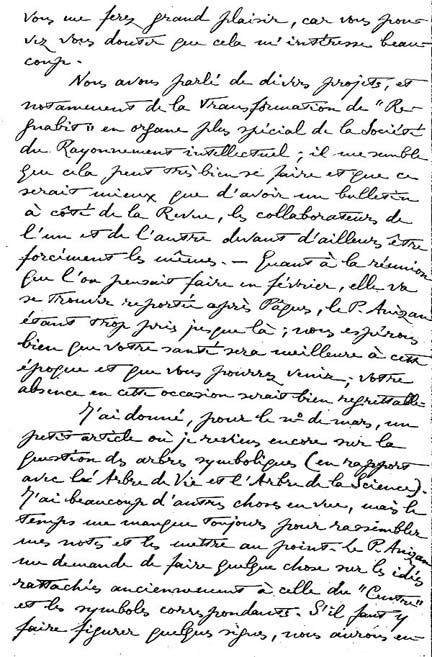 vous me ferez grand plaisir, car vous pou-
vez vous douter que cela m'intéresse beau-
coup.
Nous avons parlé de divers projets, et
notamment de la transformation de "Re-
gnabit" en organe plus spécial de la Société
du Rayonnement intellectuel ; il me semble
que cela peut très bien se faire et que ce
serait mieux que d'avoir un bulletin
à côté de la Revue, les collaborateurs de
l'un et de l'autre devant d'ailleurs être
forcément les mêmes. — Quant à la réunion
que l'on pensait faire en février, elle va
se trouver reportée après Pâques, le P. Anizan
étant trop pris jusque là ; nous espérons
bien que votre santé sera meilleure à cette
époque et que vous pourrez venir ; votre
absence en cette occasion serait bien regrettable.
J'ai donné, pour le nº de mars, un
petit article où je reviens encore sur la
question des arbres symboliques (en rapport
avec l'Arbre de Vie et l'Arbre de la Science).
J'ai beaucoup d'autres choses en vue, mais le
temps me manque toujours pour rassembler
mes notes et les mettre au point. Le P. Anizan
me demande de faire quelque chose sur les idées
rattachées anciennement à celle du "Centre"
et les symboles correspondants. S'il faut y
faire figurer quelques signes, nous aurons en-